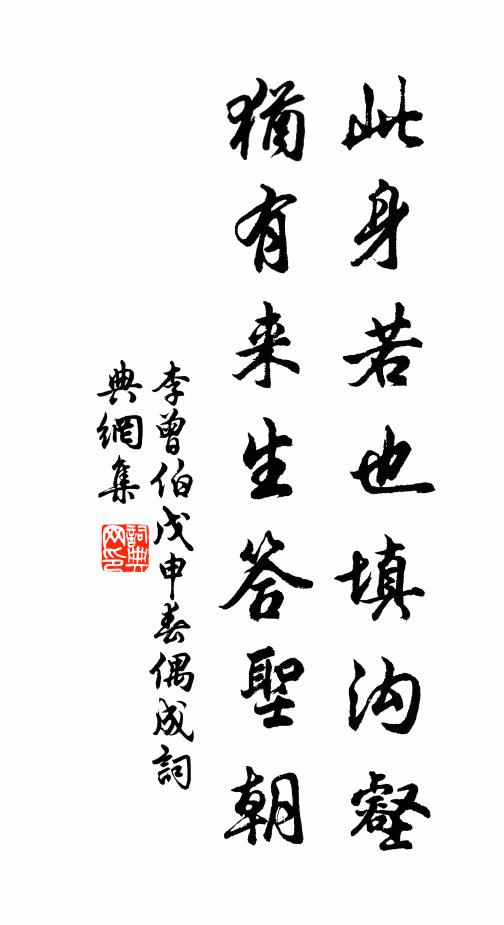 此身若也填沟壑
犹有来生答聖朝
李曾伯戊申春偶成詞
典網集
詞典
网印